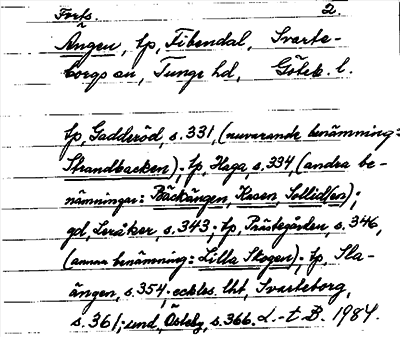 Forts. 2.
Ängen, tp, Tibendal, Svarte-
borgs sn, Tunge hd, Göteb. l.
tp, Gadderöd, s. 331, (nuvarande benämning:
Strandbacken); tp, Haga, s. 334, (andra be-
nämningar: Bäckängen, Hasen, Sollid(en);
gd, Leråker, s. 343; tp, Prästegården, s. 346,
(annan benämning: Lilla Skogen); tp, Sla-
ängen, s. 354; eckles. lht, Svarteborg,
s. 361; und, Österby, s. 366. L.-t. B. 1984.